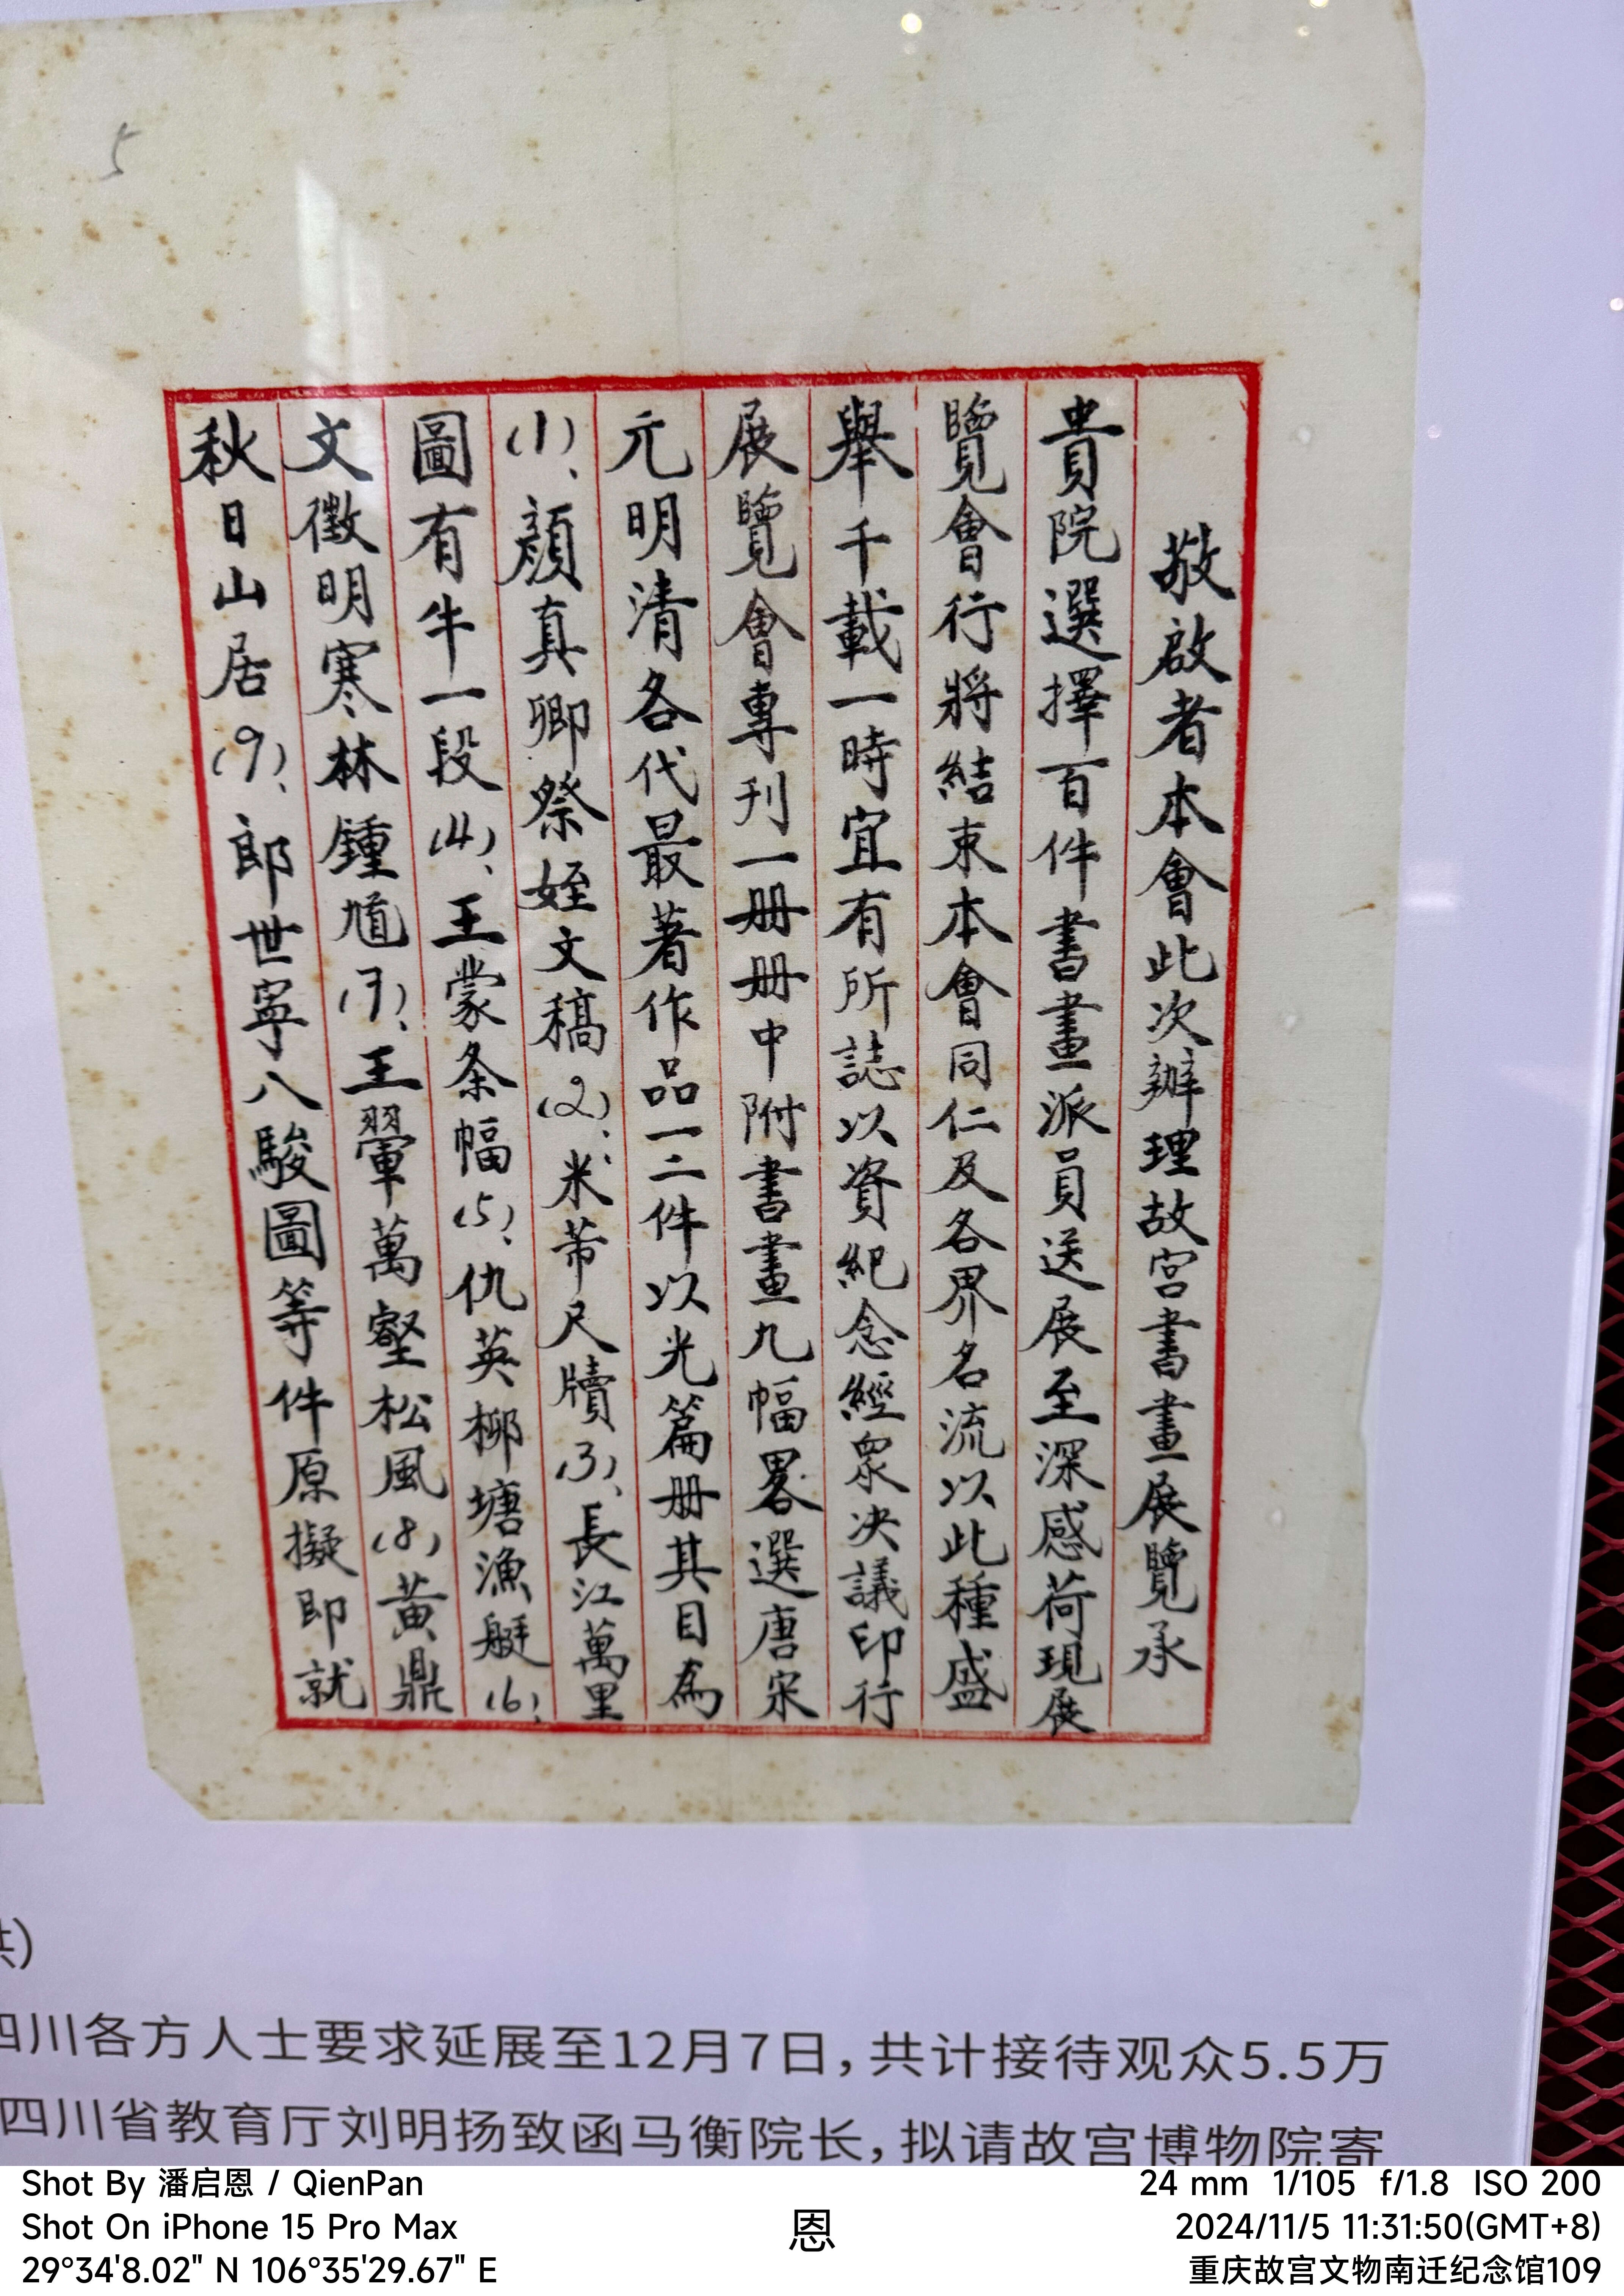 5
敬啟者本會此次辦理故宮書畫展覽承
貴院選擇百件書畫派員送展至深感荷現展
覽會行將結束本會同仁及各界名流以此種盛
舉千載一時宜有所誌以資紀念經眾决議印行
展覽會專刊一册册中附書畫九幅畧選唐宋
元明清各代最著作品一二件以光篇册其目為
(1)、顏真卿祭姪文稿(2)、米芾尺牘(3)、長江萬里
圖有牛一段(4)、王蒙条幅(5)、仇英柳塘漁艇(6)、
文徵明寒林鍾馗(7)、王翬萬壑松風(8)黃鼎
秋日山居(9)、郎世寧八駿圖等件原擬即就
供)
四川各方人士要求延展至12月7日,共计接待观众5.5万
四川省教育厅刘明扬致函马衡院长,拟请故宫博物院寄
Shot By 潘启恩 / QienPan
Shot On iPhone 15 Pro Max
29°34'8.02" N 106°35'29.67" E
恩
24 mm 1/105 f/1.8 ISO 200
2024/11/5 11:31:50(GMT+8)
重庆故宫文物南迁纪念馆109